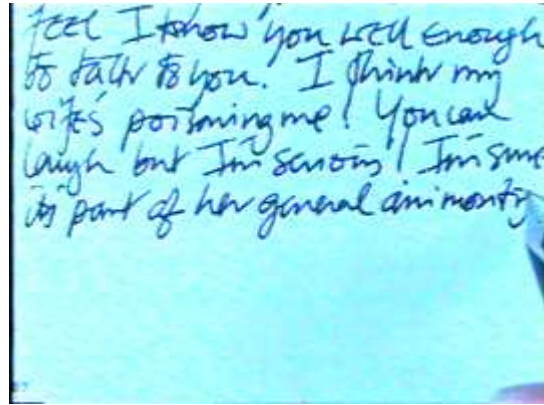 feel I know you well enough
to talk to you. I think my
wife's poisoning me! You can
laugh but I'm serious! I'm sure
its part of her general animosity